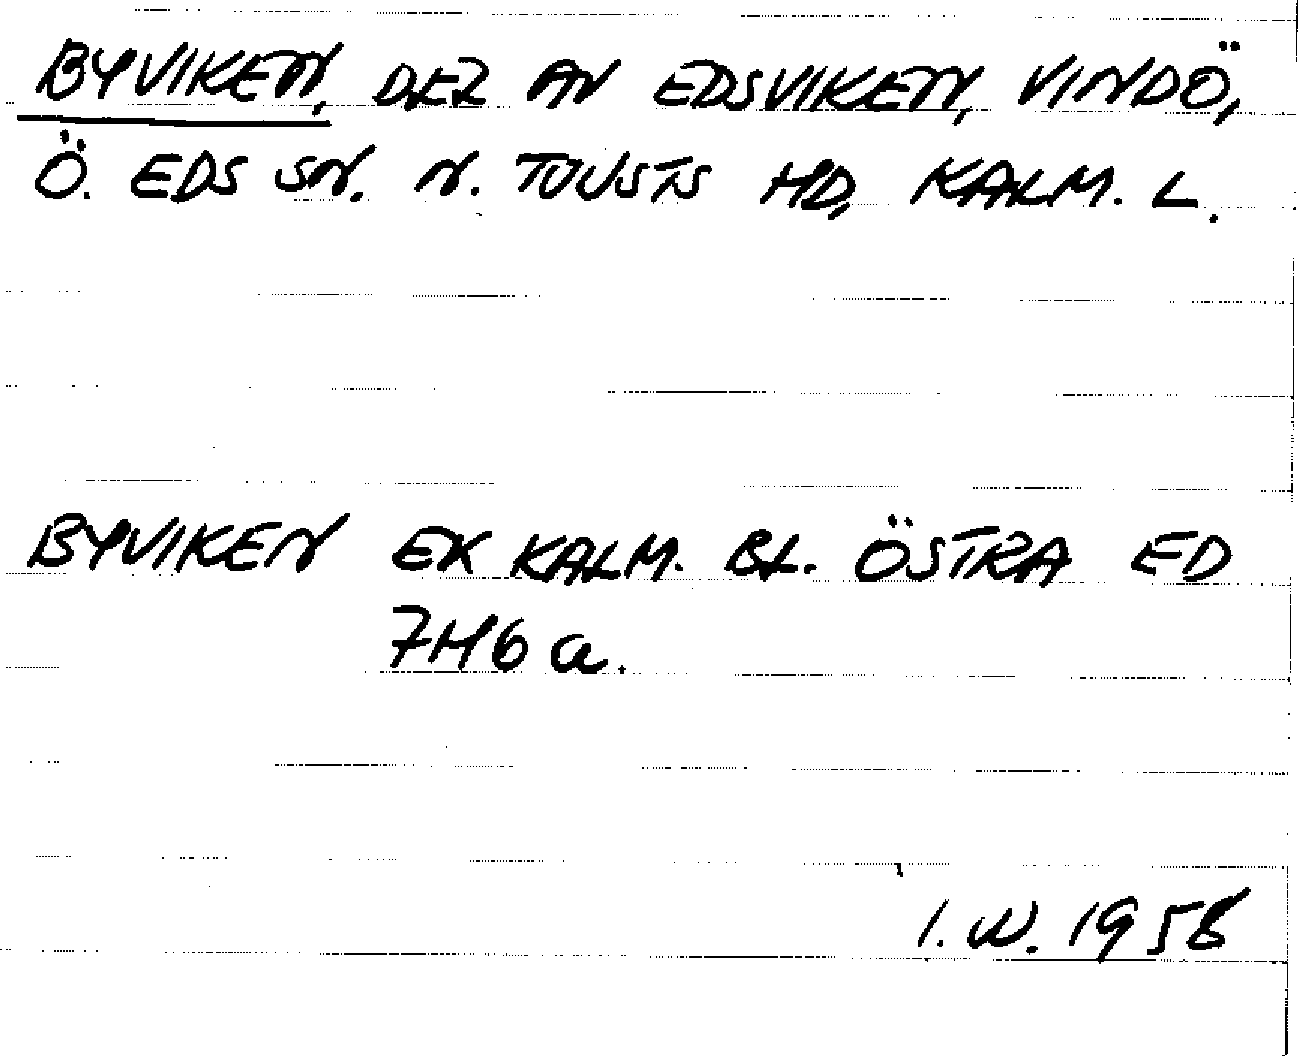 BYVIKEN, DEL AV EDSVIKEN, VINDÖ,
Ö. EDS SN. N. TJUSTS HD, KALM. L.
BYVIKEN EK KALM. BL. ÖSTRA ED
7H6a.
I.W. 1958